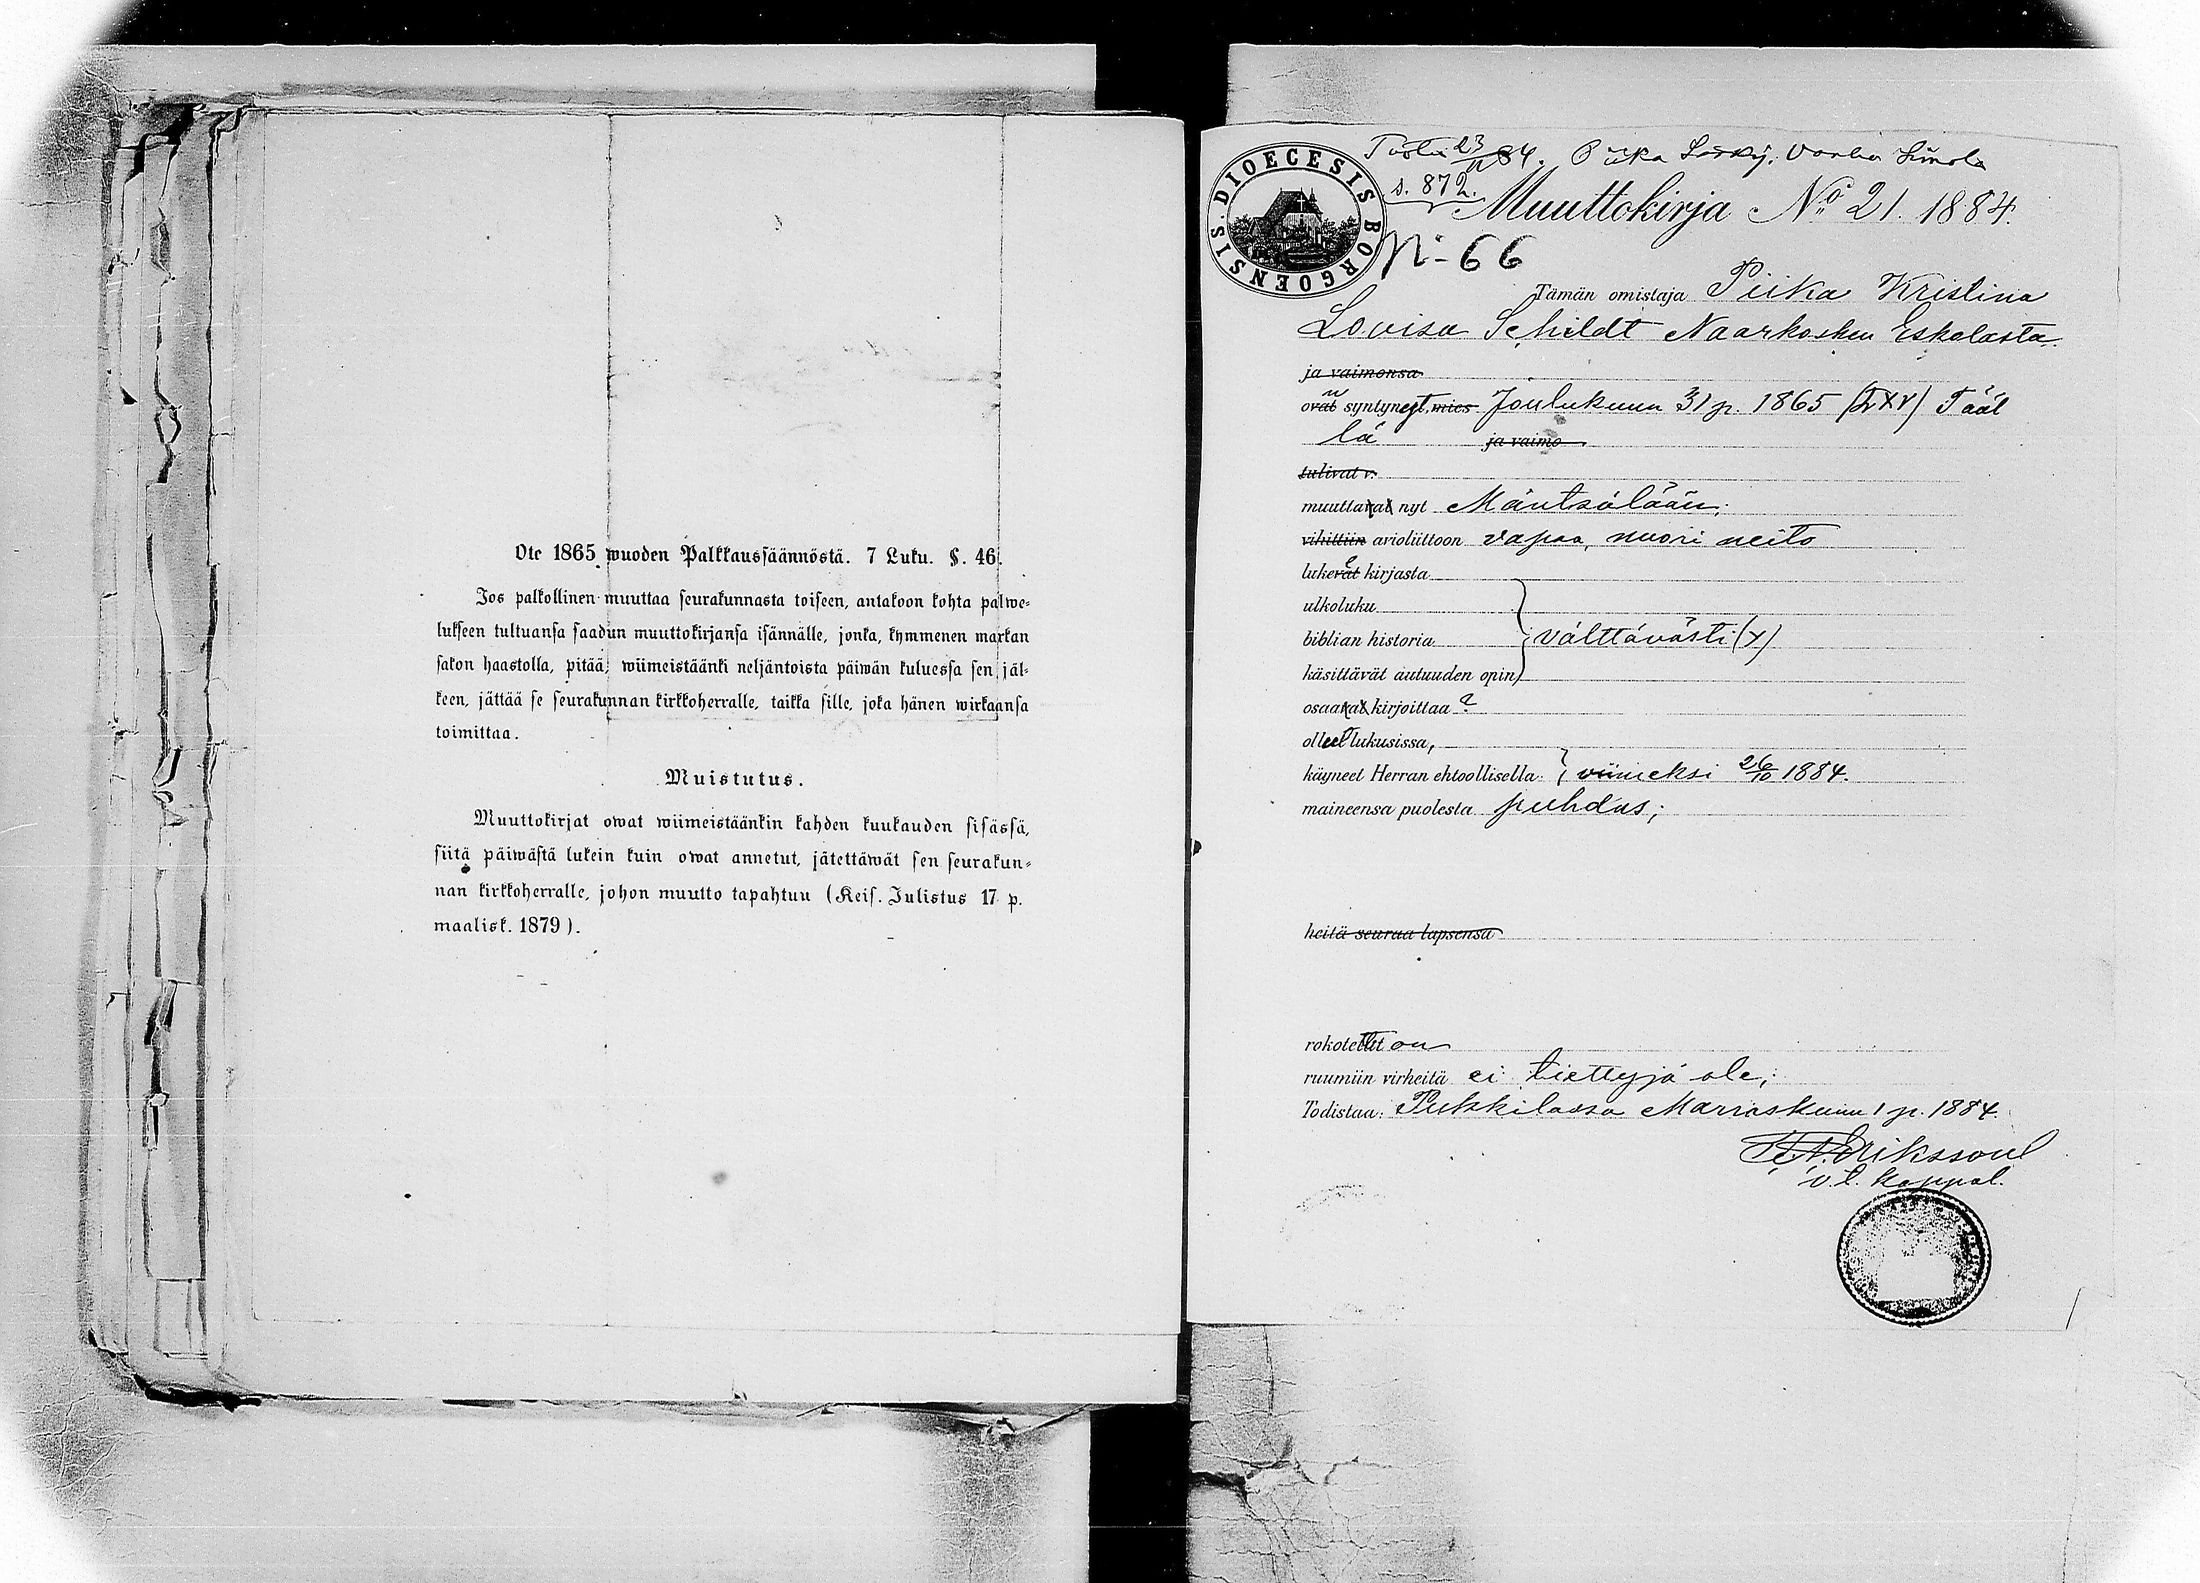 Ote 1865 wuoden Palkkaussäännöstä. 7 Luku. §. 46.
Jos palkollinen muuttaa seurakunnasta toiseen, antakoon kohta palwe-
lukseen tultuansa saadun muuttokirjansa isännälle, jonka, kymmenen markan
sakon haastolla, pitää, wiimeistäänki neljäntoista päiwän kuluessa sen jäl-
keen, jättää se seurakunnan kirkkoherralle, taikka sille, joka hänen wirkaansa
toimittaa.
Muistutus.
Muuttokirjat owat wiimeistäänkin kahden kuukauden sisässä,
siitä päiwästä lukein kuin owat annetut, jätettäwät sen seurakun-
nan kirkkoherralle, johon muutto tapahtuu (Keis. Julistus 17 p.
maalisk. 1879).
23/11 84. Piika
DIOECESIS BORGOENSIS
s. 872.
Muuttokirja No 21. 1884.
N:o 66
Tämän omistaja Piika Kristina
Lovisa Schildt Naarkosken Eskolasta
ja vaimonsa
ovat syntyneet, mies Joulukuun 31 p. 1865 (LXV) Tääl
lä ja vaimo
tulivat v.
muuttavat nyt Mäntsälään;
vihittiin avioliittoon vapaa, nuori neito
lukevat kirjasta
ulkoluku
biblian historia välttävästi (x)
käsittävät autuuden opin
osaavat kirjoittaa ?
olleet lukusissa,
käyneet Herran ehtoollisella viimeksi 26/10 1884.
maineensa puolesta puhdas;
heitä seuraa lapsensa
rokotettu on
ruumiin virheitä ei tiettyjä ole;
Todistaa: Pukkilassa Marraskuun 1 p. 1884.
Erikssonl
v.t. Kappal.